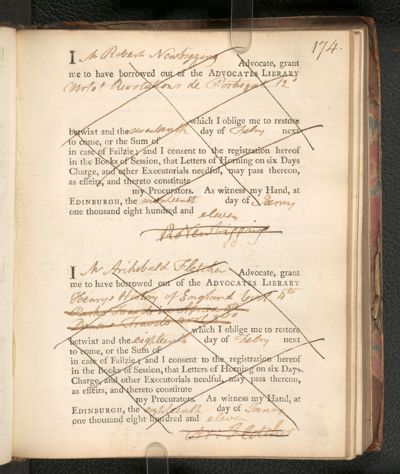 174.
I Mr Robert Newbigging Advocate, grant
me to have borrowed out of the ADVOCATES LIBRARY
Vertot Revolutions de Portugal 12o
which I oblige me to restore
betwixt and the seventeenth day of Febry next
to come, or the Sum of
in case of Failzie; and I consent to the registration hereof
in the Books of Session, that Letters of Horning on six Days
Charge, and other Executorials needful, may pass thereon,
as effeirs, and thereto constitute
my Procurators. As witness my Hand, at
EDINBURGH, the day of Janry
one thousand eight hundred and eleven
Ro Newbigging
I Mr Archibald Fletcher Advocate, grant
me to have borrowed out of the ADVOCATES LIBRARY
Henrys History of England 4to
which I oblige me to restore
betwixt and the eighteenth day of Febry next
to come, or the Sum of
in case of Failzie; and I consent to the registration hereof
in the Books of Session, that Letters of Horning on six Days
Charge, and other Executorials needful, may pass thereon,
as effeirs, and thereto constitute
my Procurators. As witness my Hand, at
EDINBURGH, the eighteenth day of Janry
one thousand eight hundred and eleven
Fletcher